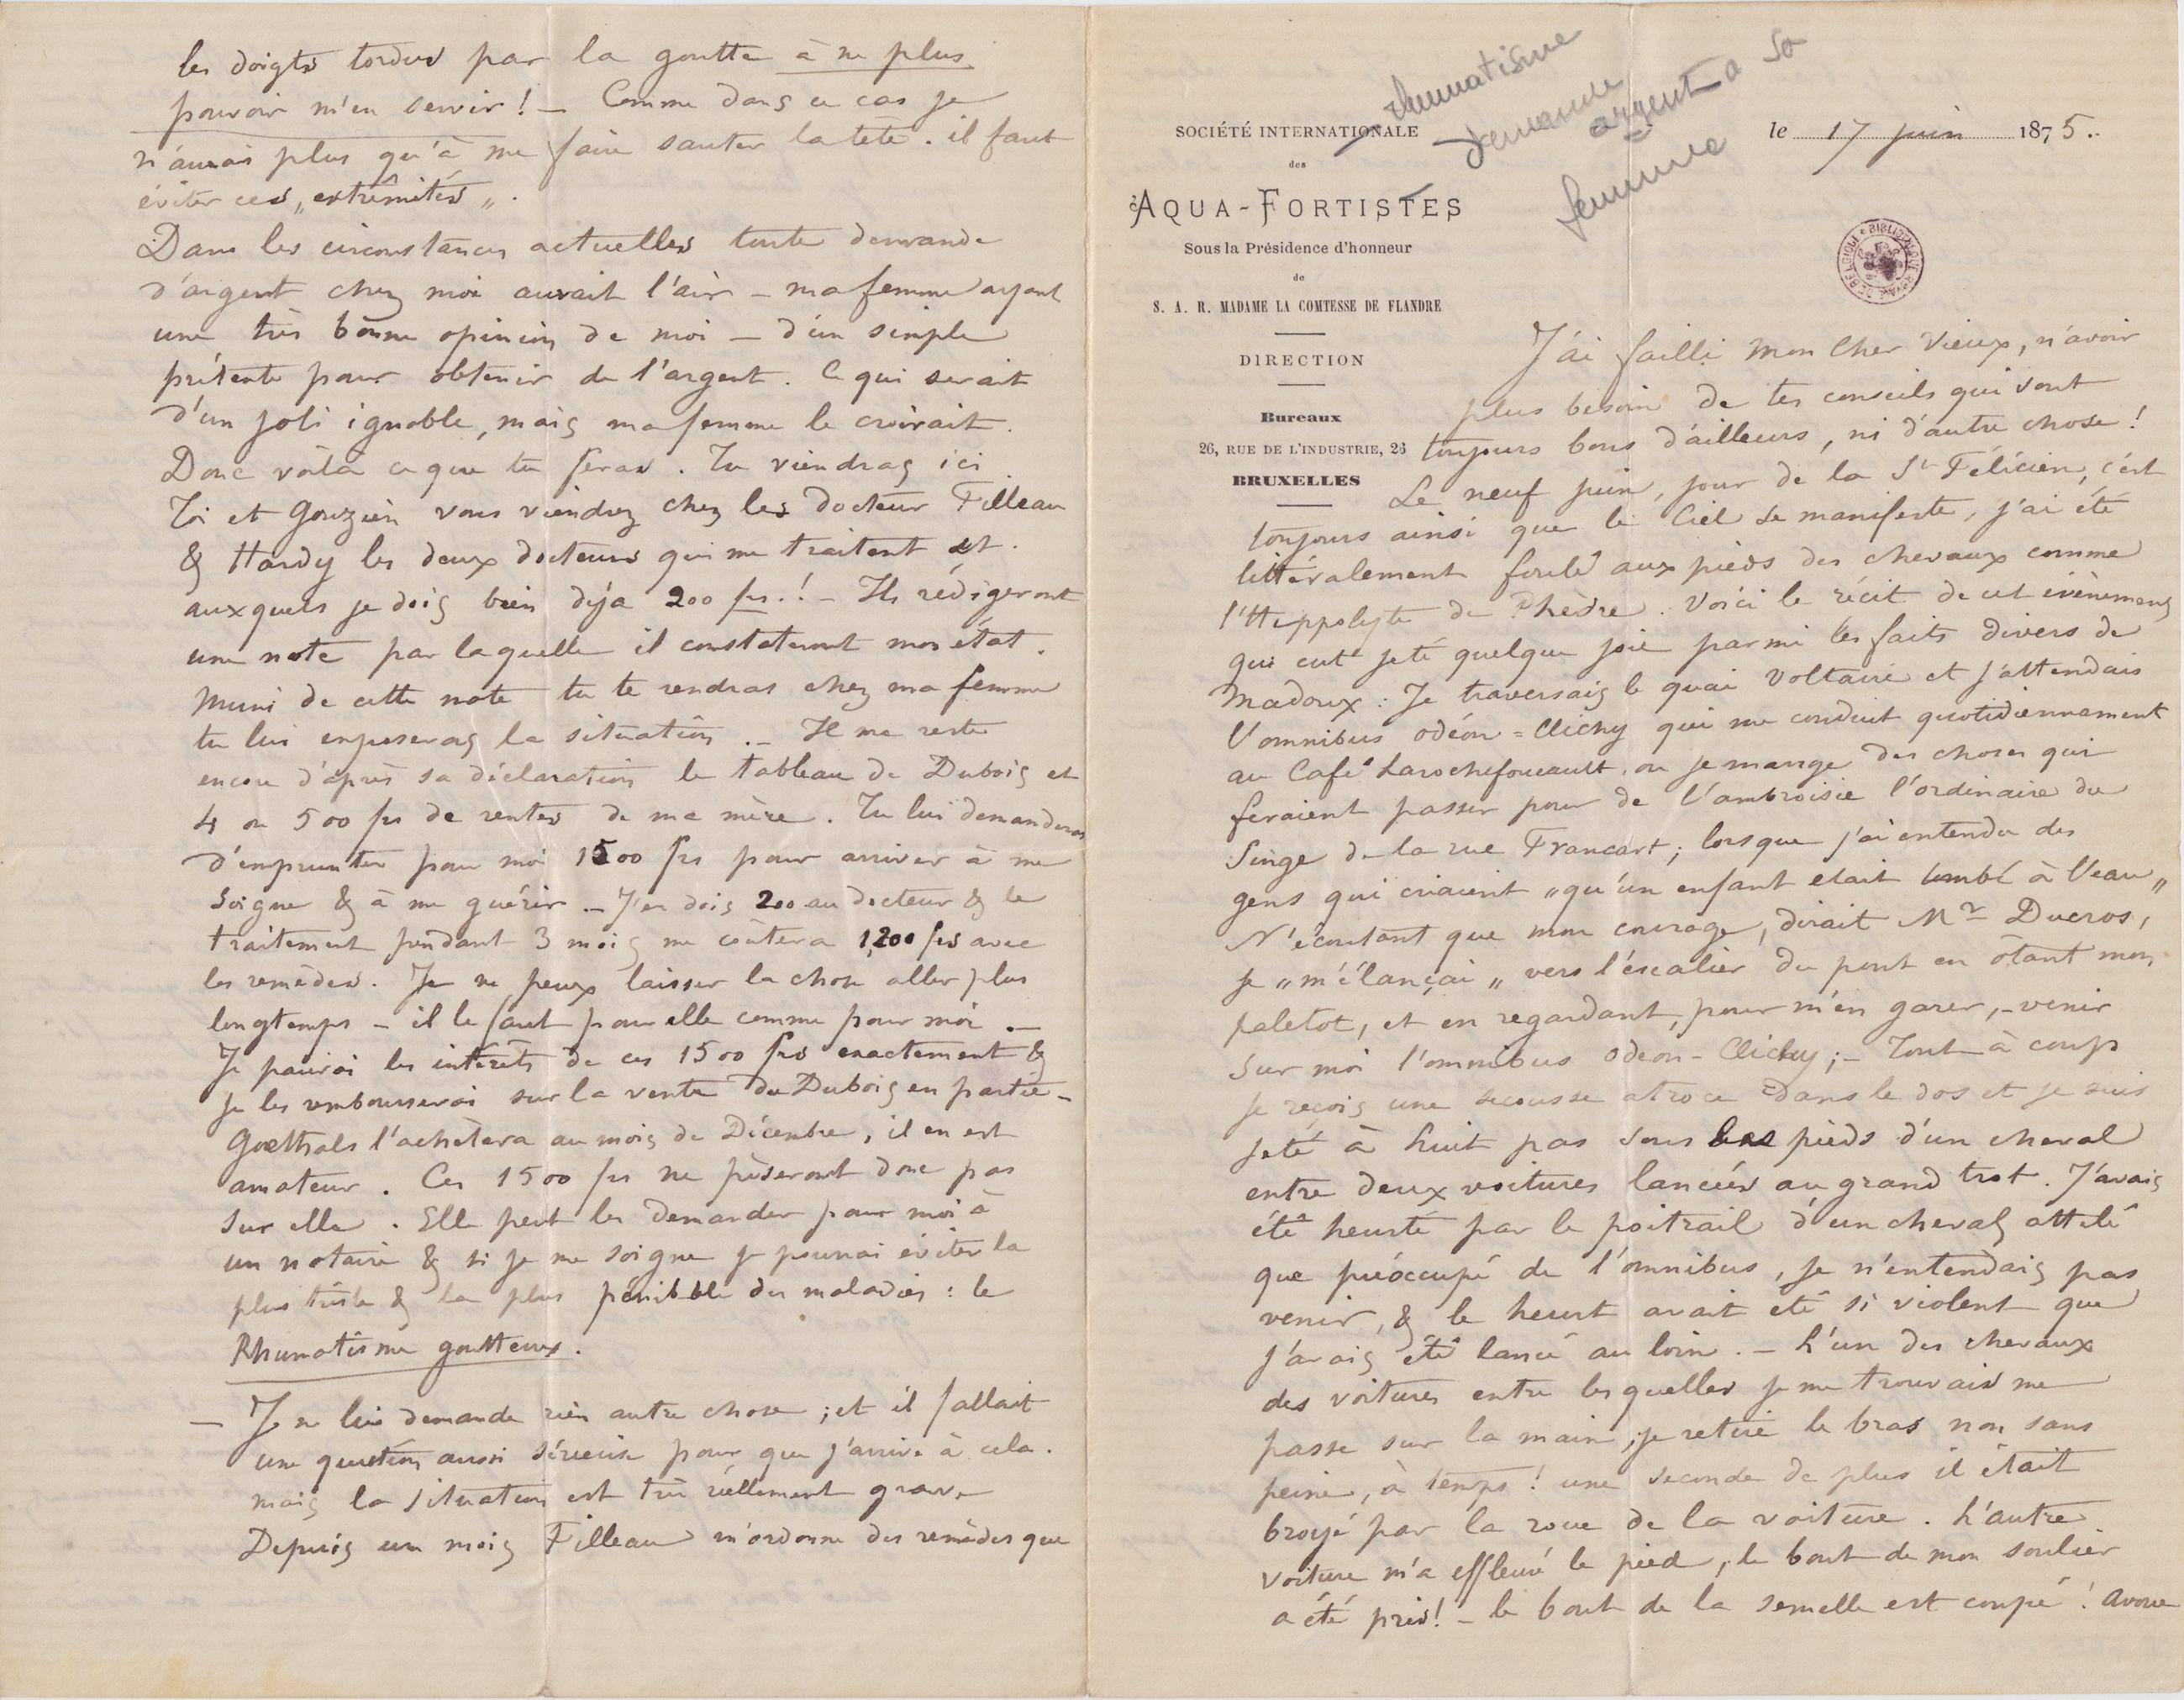 les doigts tordus par la goutte à ne plus
pouvoir m'en servir ! — Comme dans ce cas je
n'aurais plus qu'à me faire sauter la tête. il faut
éviter ces „extrêmités„.
Dans les circonstances actuelles toute demande
d'argent chez moi aurait l'air – ma femme ayant
une très bonne opinion de moi – d'un simple
prétexte pour obtenir de l'argent. Ce qui serait
d'un joli ignoble, mais ma femme le croirait.
Donc voilà ce que tu feras. Tu viendras ici
Toi et Gouzien vous viendrez chez les docteur Filleau
& Hardy les deux docteurs qui me traitent et
auxquels je dois bien déja 200 frs. ! – Ils rédigeront
une note par laquelle il constateront mon état.
Muni de cette note tu te rendras chez ma femme
tu lui exposeras la situation. – Il me reste
encore d'après sa déclaration le tableau de Dubois et
4 ou 500 frs de rentes de ma mère. Tu lui demanderas
d'emprunter pour moi 1500 frs pour arriver à me
soigner & à me guérir – J'en dois 200 au docteur & le
traitement pendant 3 mois me coûtera 1,200 frs avec
les remèdes. Je ne peux laisser la chose aller plus
longtemps – il le faut pour elle comme pour moi. —
Je paierai les intérêts de ces 1500 frs exactement &
je les rembourserai sur la vente du Dubois en partie –
Goethals l'achètera au mois de Décembre, il en est
amateur. Ces 1500 frs ne pèseront donc pas
sur elle. Elle peut les demander pour moi à
un notaire & si je me soigne je pourrai éviter la
plus triste & la plus pénible des maladies : le
Rhumatisme goutteux.
— Je ne lui demande rien autre chose ; et il fallait
une question aussi sérieuse pour que j'arrive à cela.
mais la situation est très réellement grave
Depuis un mois Filleau m'ordonne des remèdes que
rhumatisme
demande
argent a sa
femme
SOCIÉTÉ INTERNATIONALE
des
AQUA-FORTISTES
Sous la Présidence d'honneur
de
S. A. R. MADAME LA COMTESSE DE FLANDRE
DIRECTION
Bureaux
26, RUE DE L'INDUSTRIE, 26
BRUXELLES
le 17 juin 1875.
J'ai failli mon Cher Vieux, n'avoir
plus besoin de tes conseils qui sont
toujours bons d'ailleurs, ni d'autre chose !
Le neuf juin, jour de la St Félicien, c'est
toujours ainsi que le Ciel se manifeste, j'ai été
littéralement foulé aux pieds des chevaux comme
l'Hippolyte de Phèdre. Voici le récit de cet évènement
qui eut jeté quelque joie parmi les faits divers de
Madoux : Je traversais le quai Voltaire et j'attendais
l'omnibus Odéon = Clichy qui me conduit quotidiennement
au Café Larochefoucault, ou je mange des choses qui
feraient passer pour de l'ambroisie l'ordinaire du
Singe de la rue Francart ; lorsque j'ai entendu des
gens qui criaient „qu'un enfant etait tombé à l'eau„
N'écoutant que mon courage, dirait Mr Ducros,
je „m'élançai„ vers l'escalier du pont en ôtant mon
paletot, et en regardant, pour m'en garer, – venir
sur moi l'omnibus Odeon – Clichy ; – Tout à coup
je reçois une secousse atroce dans le dos et je suis
jeté à huit pas sous les pieds d'un cheval
entre deux voitures lancées au grand trot. J'avais
été heurté par le poitrail d'un cheval attelé
que préoccupé de l'omnibus, je n'entendais pas
venir, & le heurt avait été si violent que
j'avais été lancé au loin. – L'un des chevaux
des voitures entre lesquelles je me trouvais me
passe sur la main, je retire le bras non sans
peine, à temps ! une seconde de plus il était
broyé par la roue de la voiture. L'autre
voiture m'a effleuré le pied, le bout de mon soulier
a été pris ! – le bout de la semelle est coupé ! avoue